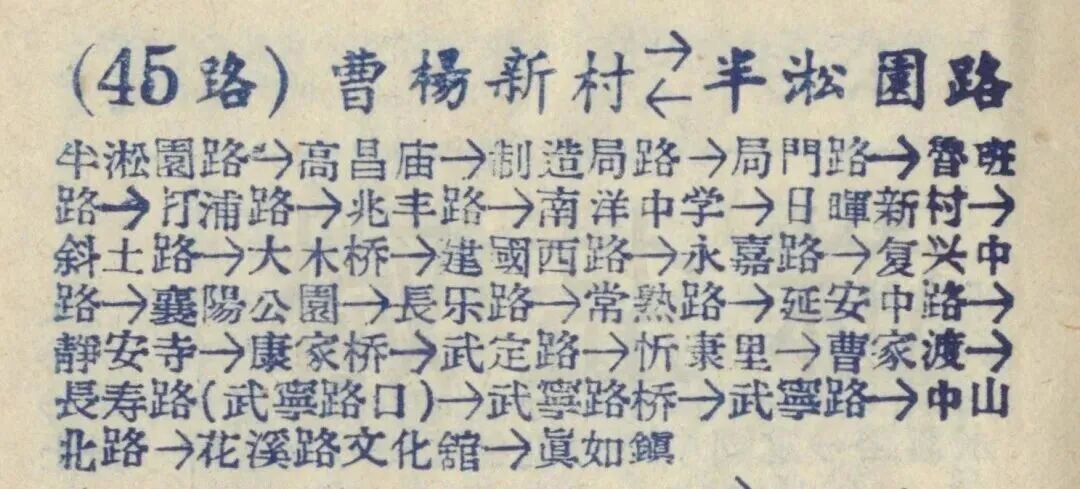 (45路)曹楊新村⇄半淞園路
半淞園路→高昌庙→制造局路→局門路→魯班
路→打浦路→兆丰路→南洋中学→日暉新村→
斜土路→大木桥→建國西路→永嘉路→复兴中
路→襄陽公園→長乐路→常熟路→延安中路→
靜安寺→康家桥→武定路→忻康里→曹家渡→
長寿路(武寧路口)→武寧路桥→武寧路→中山
北路→花溪路文化舘→眞如鎭